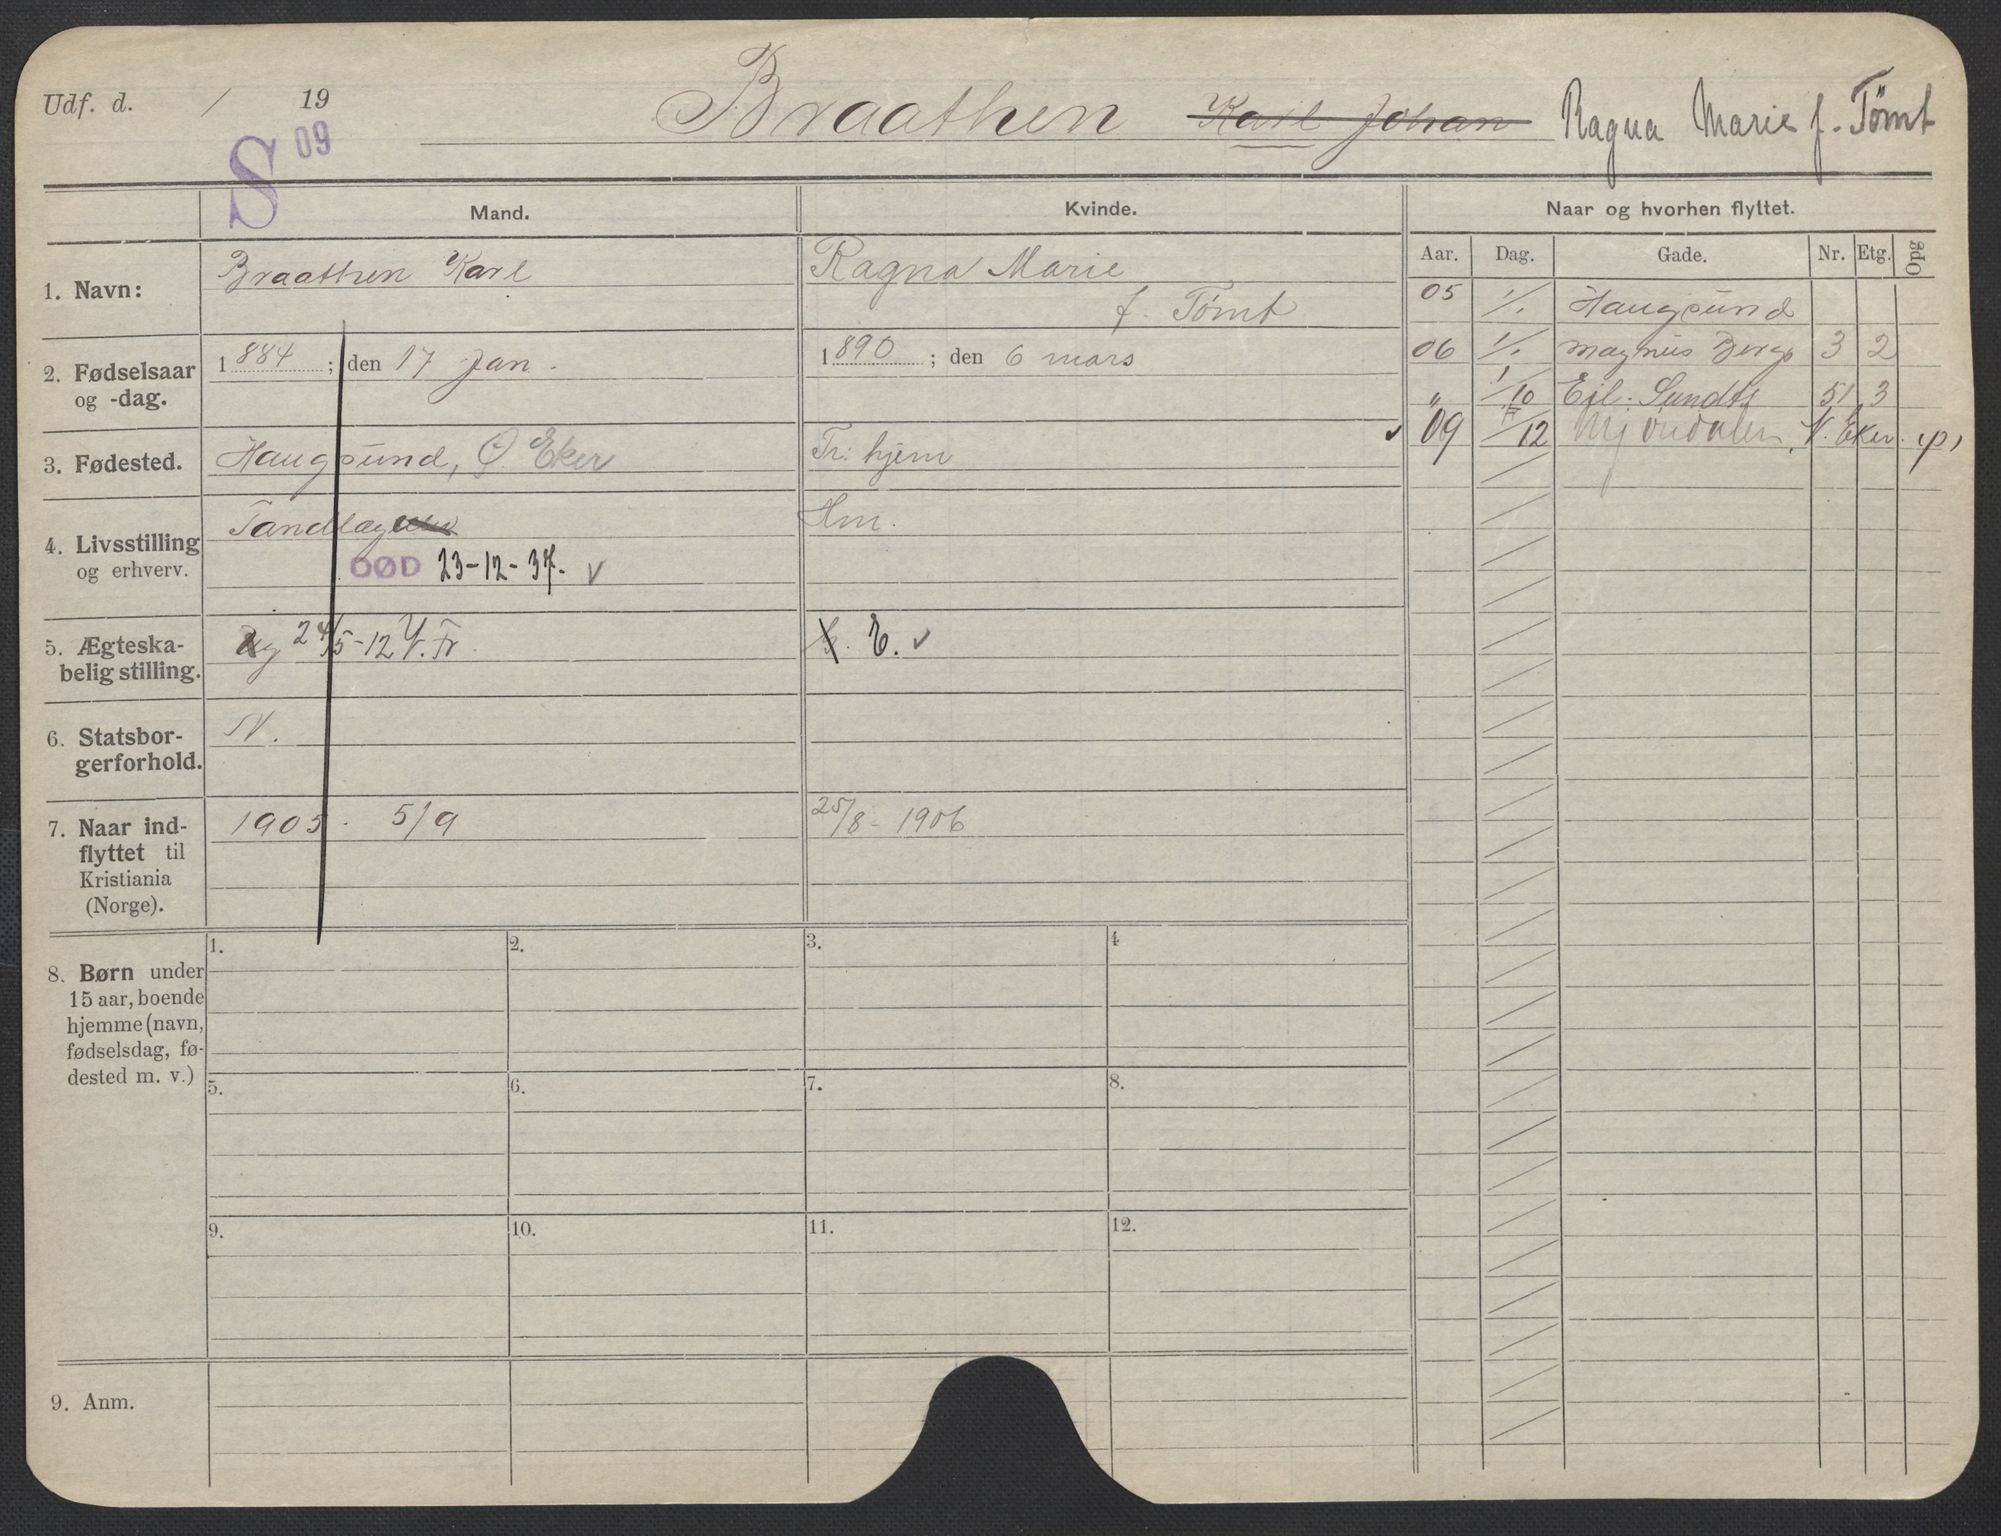 Udf. d. / 19
Braathen Karl Johan Ragna Marie f. Tømt
S 09
Mand. Kvinde. Naar og hvorhen flyttet.
Aar. Dag. Gade. Nr. Etg. Opg
1. Navn: Braathen Karl Ragna Marie
f. Tømt
05 1/1. Haugsund
2. Fødselsaar 1884; den 17 Jan. 1890; den 6 mars
og -dag.
06 1/1. Magnus Bergs 3 2
" 1/10 Eil. Sundts 51 3
09 /12 Mjøndalen, N. Eker.
3. Fødested. Haugsund, Ø. Eker Tr: hjem
4. Livsstilling Tandlæge Hm.
og erhverv. DØD 23-12-37. ✓
5. Ægteska- Ug 24/5-12 V. Fr. E. ✓
belig stilling.
6. Statsbor- N.
gerforhold.
7. Naar ind- 1905. 5/9 25/8-1906
flyttet til
Kristiania
(Norge).
1. 2. 3. 4
8. Børn under
15 aar, boende
hjemme (navn,
fødselsdag, fø-
dested m. v.)
5. 6. 7. 8.
9. 10. 11. 12.
9. Anm.